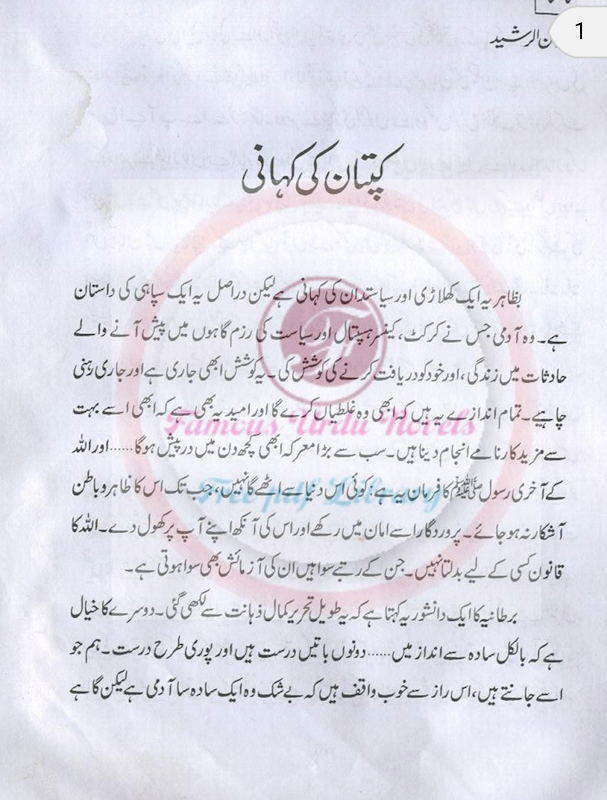 1
ن الرشید
کپتان کی کہانی
بظاہر یہ ایک کھلاڑی اور سیاستدان کی کہانی ہے لیکن دراصل یہ ایک سپاہی کی داستان
ہے۔ وہ آدمی جس نے کرکٹ، کینسر ہسپتال اور سیاست کی رزم گاہوں میں پیش آنے والے
حادثات میں زندگی، اور خود کو دریافت کرنے کی کوشش کی۔ یہ کوشش ابھی جاری ہے اور جاری رہنی
چاہیے۔ تمام اندازے یہ ہیں کہ ابھی وہ غلطیاں کرے گا اور امید یہ بھی ہے کہ ابھی اسے بہت
سے مزید کارنامے انجام دینا ہیں۔ سب سے بڑا معرکہ ابھی کچھ دن میں درپیش ہوگا......اور اللہ
کے آخری رسول ﷺ کا فرمان یہ ہے: کوئی اس دنیا سے اٹھے گا نہیں، جب تک اس کا ظاہر و باطن
آشکار نہ ہو جائے۔ پروردگار اسے امان میں رکھے اور اس کی آنکھ اپنے آپ پر کھول دے۔ اللہ کا
قانون کسی کے لیے بدلتا نہیں۔ جن کے رتبے سوا ہیں ان کی آزمائش بھی سوا ہوتی ہے۔
برطانیہ کا ایک دانشور یہ کہتا ہے کہ یہ طویل تحریر کمال ذہانت سے لکھی گئی۔ دوسرے کا خیال
ہے کہ بالکل سادہ سے انداز میں......دونوں باتیں درست ہیں اور پوری طرح درست۔ ہم جو
اسے جانتے ہیں، اس راز سے خوب واقف ہیں کہ بے شک وہ ایک سادہ سا آدمی ہے لیکن گاہے
Famous Urdu Novels
Free pdf Library